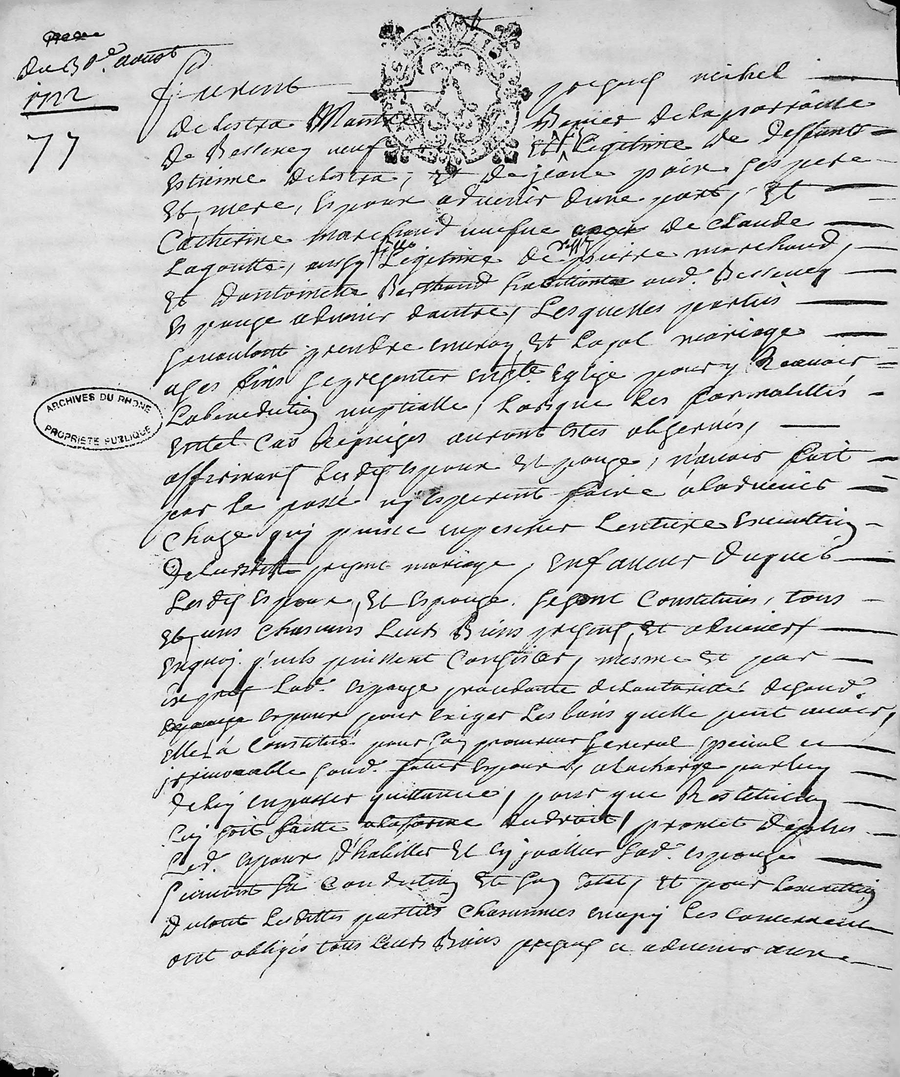 du 31e aoust
1722
77
furent presens michel
delestra
de Bessenay fils Legitime de deffunts
Estienne delestra, et de jeane ses pere
Et mere, Espoux advenir dune part, Et
Catherine marchand veufve de claude
Lagoutte, fille Legitime de pierre marchand,
Et dantoinette Berthaud habittante aud. Bessenay
Espouze advenir dautre, Lesquelles parties
prendre en vray Et Loyal mariage
a ces fins se presenter en ste. Eglise pour y Recevoir
La benediction nuptialle, Lorsque Les formalittés
En tel Cas Requises auront Estés observés,
affirmans Lesds Espoux Et Espouze, n'avoir fait
par Le passé ny Esperent faire a Ladvenir
Choze qui puisse enpescher Lentiere Execution
presant mariage, En faveur duquel
Lesds Espoux, Et Espouze, se sont Constitués, tous
Et uns chascuns Leurs Biens presens, Et advenirs
En quoy quils puissent Consister, mesme Et par
exprés Lad. Espouze de Lautorité de sond.
Espoux pour exiger Les biens quelle peut avoir,
Elle a Constitué pour son procureur General special et
irrevocable sond. futur Espoux, a la charge par luy
den passer quittance, pour que Restitution
Luy soit faitte a la forme du droit, promet de plus
Led. Espoux d'habiller Et Enjoailler Lad. Espouze
suivant sa Condition Et son Estat, Et pour Lexecution
du tout Lesdittes parties Chascunnes en ce qui Les Concernent
ont obligés tous Leurs Biens presens et advenirs aux
ARCHIVES DU RHONE
PROPRIETE PUBLIQUE